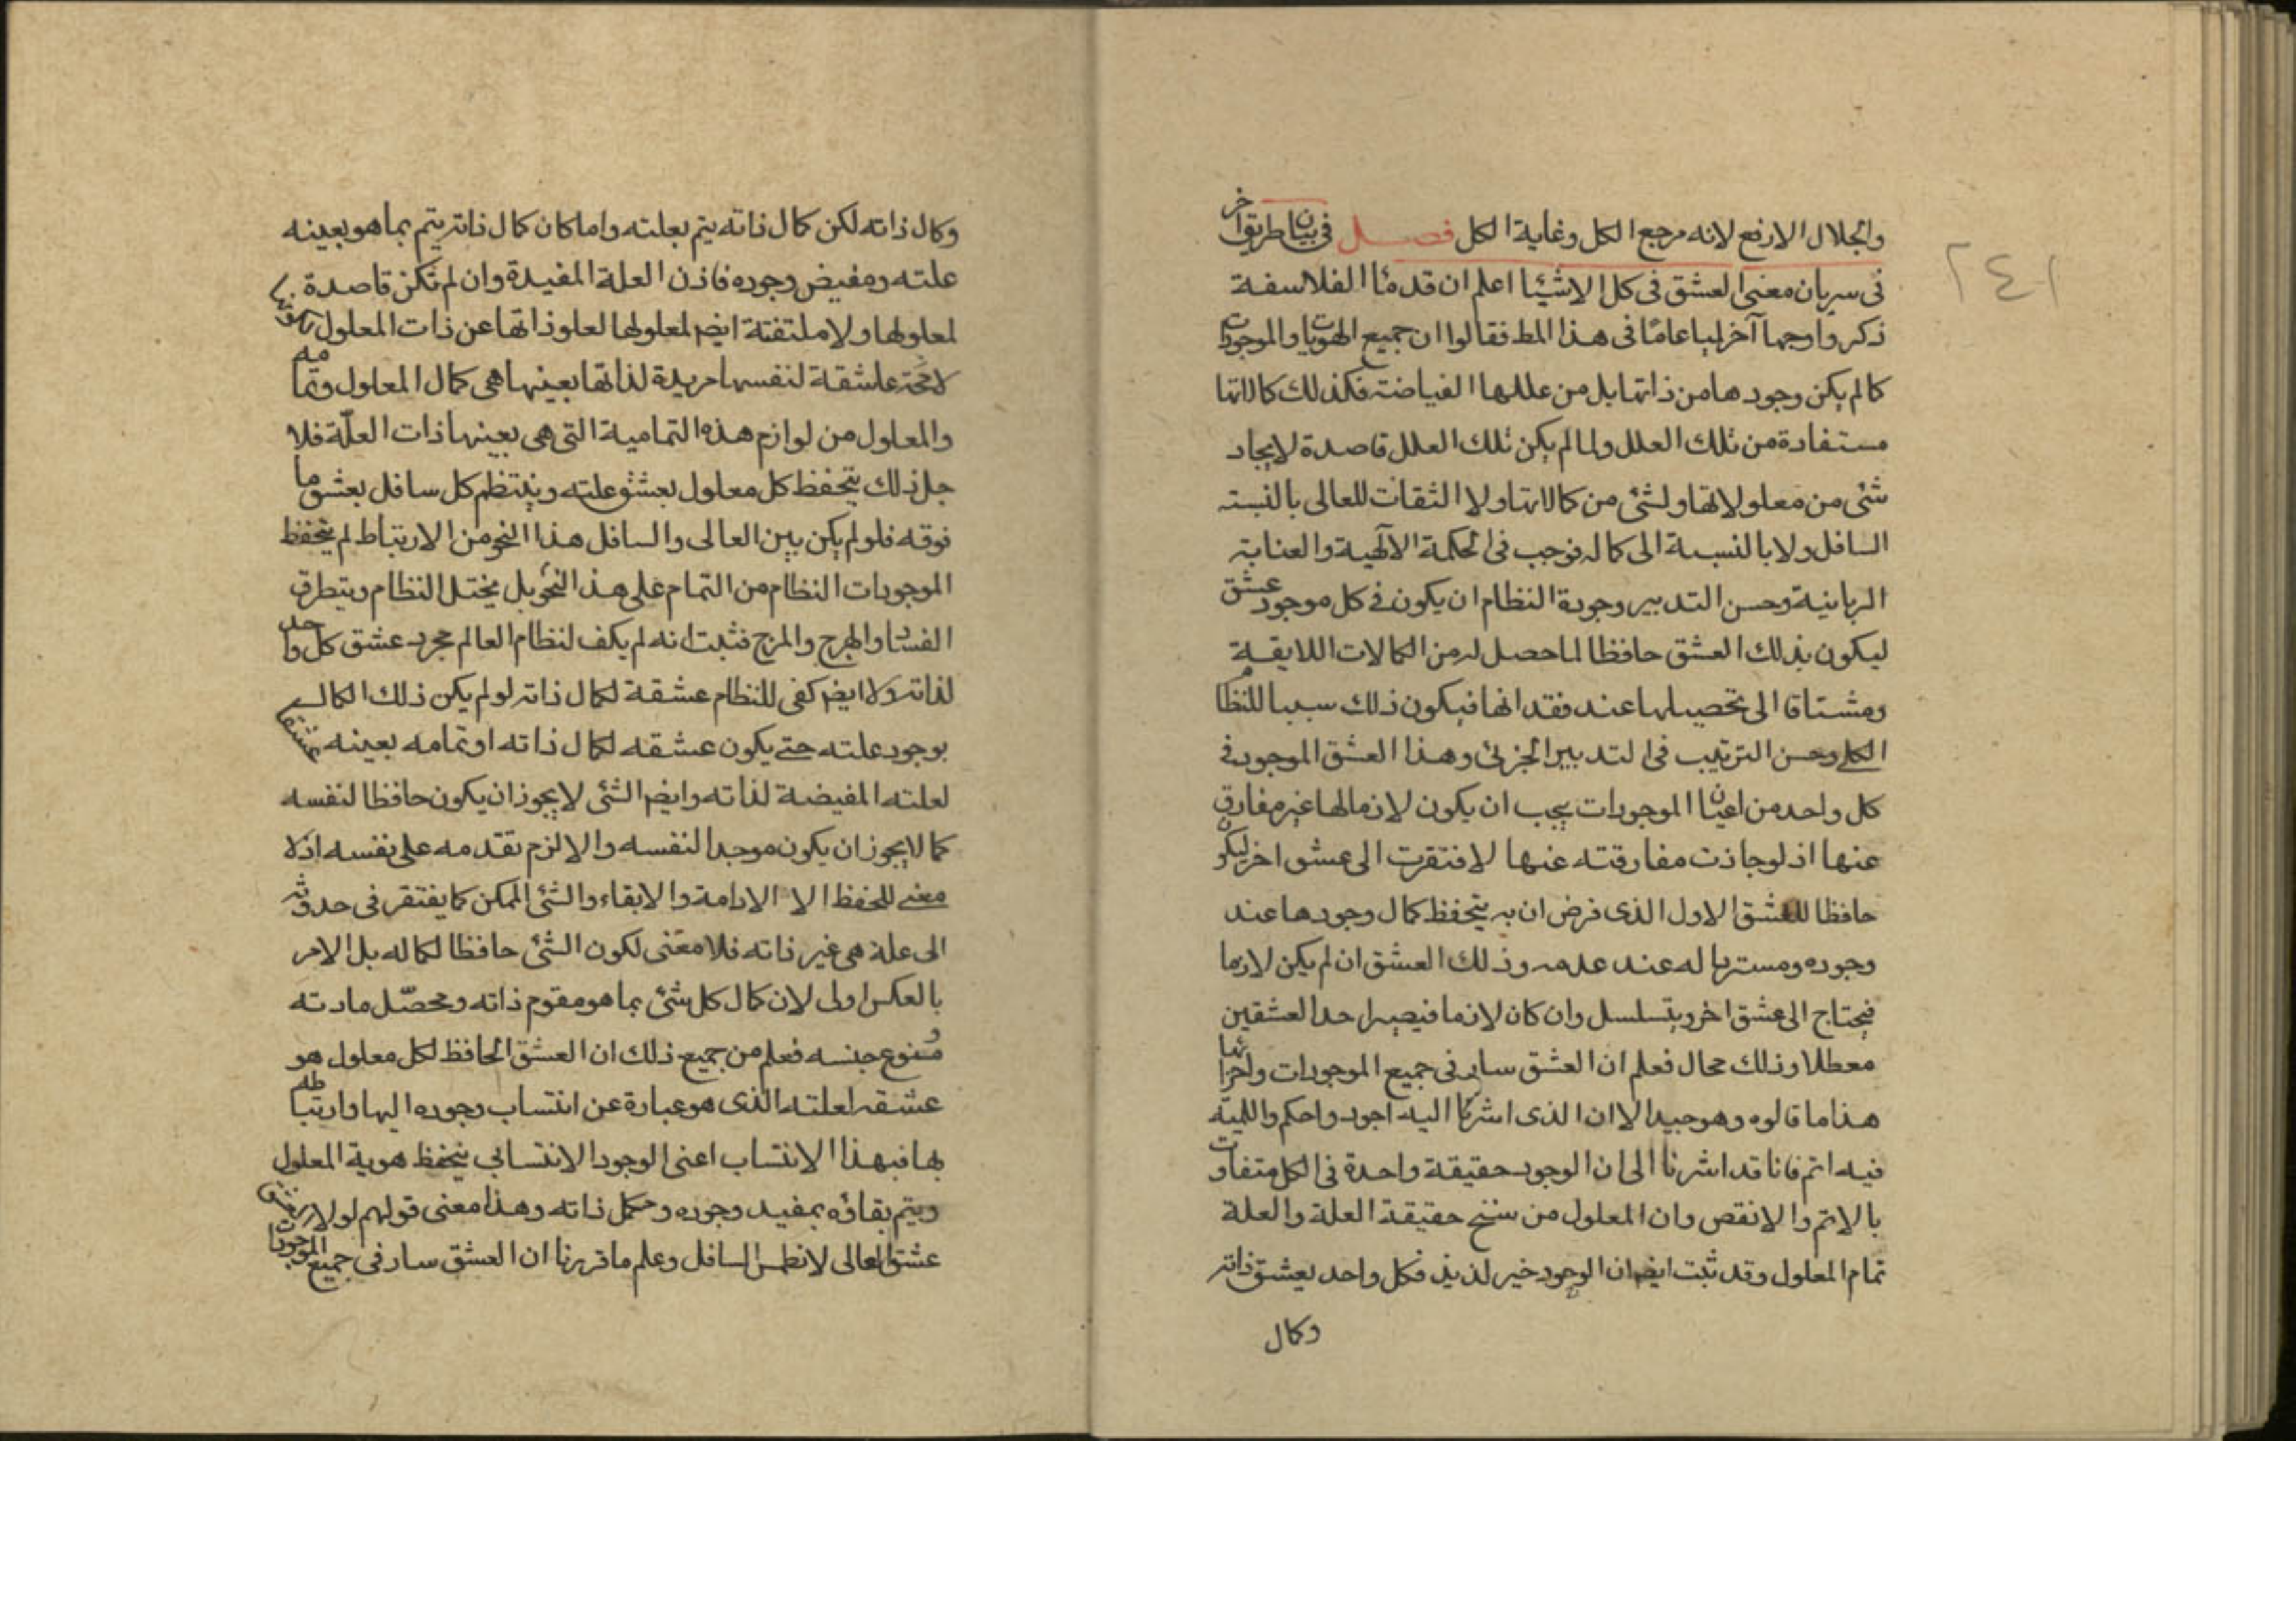 والجلال الارفع لانه مرجع الكل وغاية الكل فصل فى بيان طريق اخر
٢٤١
فى سريان معنى العشق فى كل الاشيئا اعلم ان قدمئا الفلاسفة
ذكروا وجها آخر لميا عاما فى هذا المط فقالوا ان جميع الهويات والموجودات
كما لم يكن وجودها من ذاتها بل من عللها الفياضة فكذلك كمالاتها
مستفادة من تلك العلل ولما لم يكن تلك العلل قاصدة لايجاد
شئ من معلولاتها ولشئ من كمالاتها ولا التفات للعالى بالنسبة
السافل ولا بالنسبة الى كماله فوجب فى الحكمة الآلهية والعناية
الربانية وحسن التدبير وجودة النظام ان يكون فى كل موجود عشق
ليكون بذلك العشق حافظا لما حصل له من الكمالات اللايقة
ومشتاقا الى تحصيلها عند فقدانها فيكون ذلك سببا للنظام
الكلى وحسن الترتيب فى التدبير الجزئى وهذا العشق الموجود فى
كل واحد من اعيان الموجودات يجب ان يكون لازما لها غير مفارق
عنها اذ لو جازت مفارقته عنها لافتقرت الى عشق اخر ليكون
حافظا للعشق الاول الذى فرض ان به يتحفظ كمال وجودها عند
وجوده ومستردا له عند عدمه وذلك العشق ان لم يكن لازما
فيحتاج الى عشق اخر ويتسلسل وان كان لازما فيصير احد العشقين
معطلا وذلك محال فعلم ان العشق سار فى جميع الموجودات واجزائها
هذا ما قالوه وهو جيد الا ان الذى اشرنا اليه اجود واحكم واللمية
فيه اتم فانا قد اشرنا الى ان الوجود حقيقة واحدة فى الكل متفاوت
بالاتم والانقص وان المعلول من سنخ حقيقة العلة والعلة
تمام المعلول وقد ثبت ايضا ان الوجود خير لذيذ فكل واحد يعشق ذاته
وكمال
وكمال ذاته لكن كمال ذاته يتم بعلته واما كان كمال ذاته يتم بما هو بعينه
علته ومفيض وجوده فاذن العلة المفيدة وان لم تكن قاصدة
لمعلولها ولا ملتفتة ايضا لمعلولها لعلو ذاتها عن ذات المعلول
لامحة عاشقة لنفسها مريدة لذاتها بعينها هى كمال المعلول وتمامه
والمعلول من لوازم هذه التمامية التى هى بعينها ذات العلّة فلا
جل ذلك يتحفظ كل معلول بعشق علته وينتظم كل سافل بعشق ما
فوقه فلو لم يكن بين العالى والسافل هذا النحو من الارتباط لم يتحفظ
الموجودات النظام من التمام على هذا النحو بل يختل النظام ويتطرق
الفساد والهرج والمرج فثبت انه لم يكف لنظام العالم مجرد عشق كل واحد
لذاته ولا ايضا كفى للنظام عشقة لكمال ذاته لو لم يكن ذلك الكمال
بوجود علته حتى يكون عشقه لكمال ذاته او تمامه بعينه عشقا
لعلته المفيضة لذاته وايضا الشئ لا يجوز ان يكون حافظا لنفسه
كما لا يجوز ان يكون موجدا لنفسه والا لزم تقدمه على نفسه اذ لا
معنى للحفظ الا الادامة والابقاء والشئ الممكن كما يفتقر فى حدوثه
الى علة هى غير ذاته فلا معنى لكون الشئ حافظا لكماله بل الامر
بالعكس اولى لان كمال كل شئ بما هو مقوم ذاته ومحصّل مادته
ومنوع جنسه فعلم من جميع ذلك ان العشق الحافظ لكل معلول هو
عشقه لعلته الذى هو عبارة عن انتساب وجوده اليها وارتباطه
بها فبهذا الانتساب اعنى الوجود الانتسابي يتحفظ هوية المعلول
ويتم بقاؤه بمفيد وجوده ومكمل ذاته وهذا معنى قولهم لولا
عشق العالى لانطمس السافل وعلم ما قررنا ان العشق سار فى جميع الموجودات